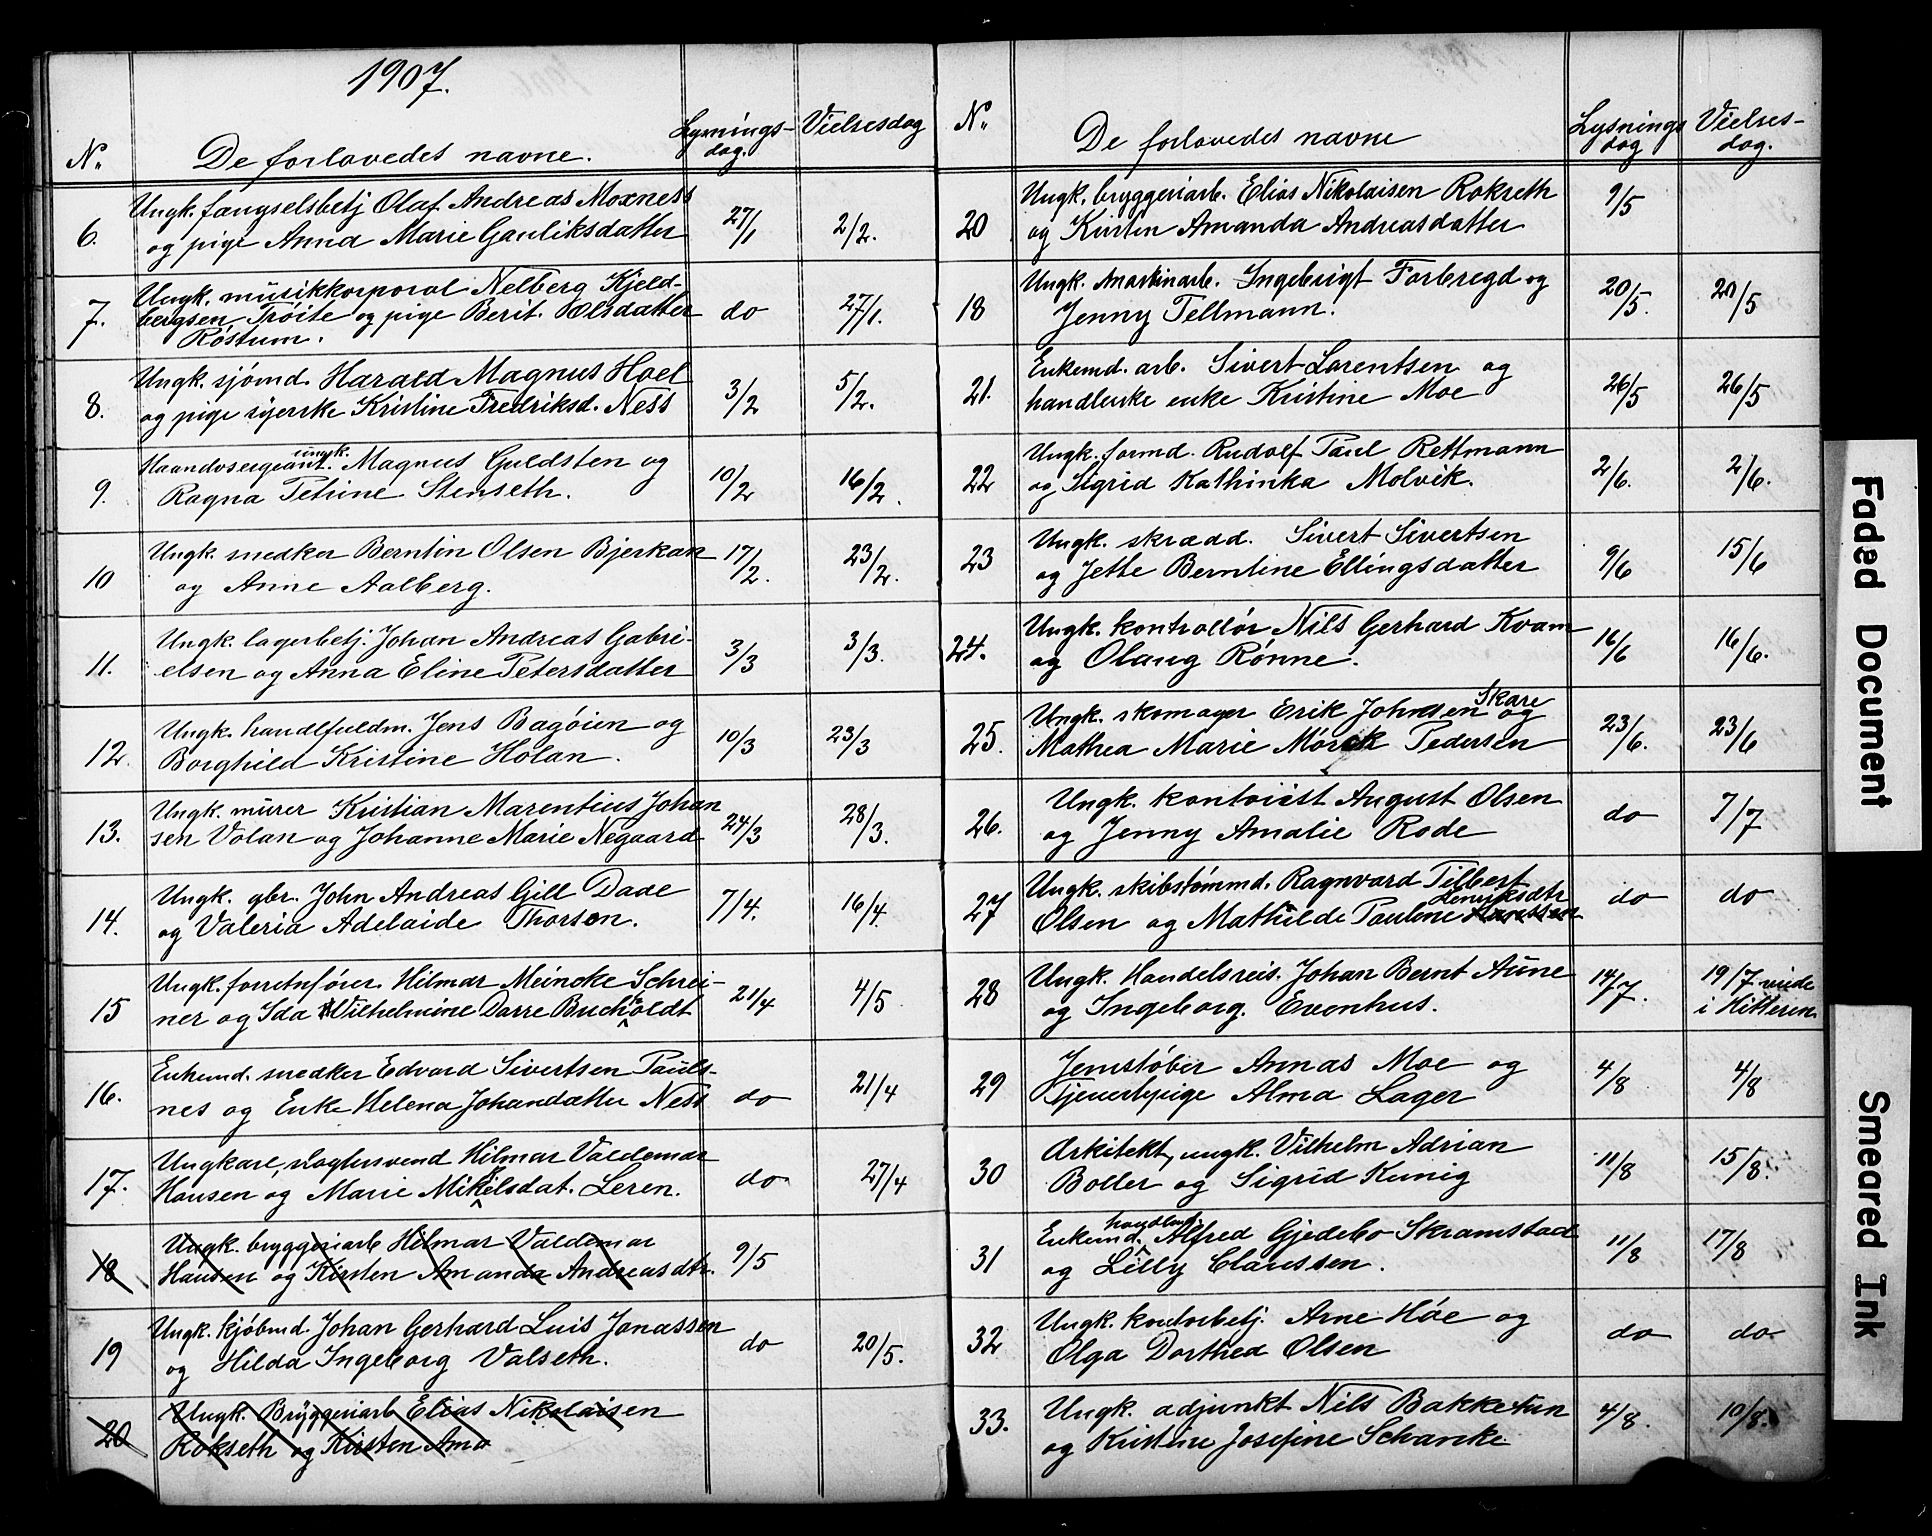 1907.
N.
De forlovedes navne.
Lysnings-
dag.
Vielsesdag
6.
Ungk. fængselsbetj Olaf Andreas Moxness
og pige Anna Marie Gauliksdatter
27/1
2/2.
7.
Ungk. musikkorporal Nelberg Kjeld-
bergsen Trøite og pige Berit Olsdatter
Röstum.
do
27/1.
8.
Ungk. sjömd. Harald Magnus Hoel
og pige syerske Kristine Fredriksd. Ness
3/2
5/2.
9.
Haandv.sergeant. ungk. Magnus Guldsten og
Ragna Petrine Stenseth.
10/2
16/2.
10
Ungk. snedker Berntin Olsen Bjerkan
og Anne Aalberg.
17/2.
23/2.
11.
Ungk. lagerbetj. Johan Andreas Gabri-
elsen og Anna Eline Petersdatter
3/3
3/3.
12.
Ungk. handlfuldm. Jens Bagöien og
Borghild Kristine Holan.
10/3
23/3
13.
Ungk. murer Kristian Marentius Johan
sen Volan og Johanne Marie Negaard
24/3
28/3.
14.
Ungk. gbr. John Andreas Gill Dade
og Valeria Adelaide Thorsen.
7/4.
16/4.
15
Ungk. forretnfórer Hilmar Meincke Schrei-
ner og Ida Vilhelmine Darre Buchholdt
21/4
4/5
16.
Enkemd. snedker Edvard Sivertsen Pauls-
nes og Enke Helena Johandatter Ness
do
21/4
17.
Ungkarl, slagtersvend Hilmar Valdemar
Hansen og Marie Mikkelsdat. Leren.
do
27/4
18
Ungk. bryggeriarb Hilmar Valdemar
Hansen og Kirsten Amanda Andreasdtr.
9/5
19
Ungk. kjöbmd. Johan Gerhard Luis Jonassen
og Hilda Ingeborg Valseth.
do
20/5.
20
Ungk. Bryggeriarb Elias Nikolaisen
Rokseth og Kirsten Ama
N.
De forlovedes navne
Lysnings
dag
Vielses-
dag.
20
Ungk. bryggeriarb. Elias Nikolaisen Rokseth
og Kirsten Amanda Andreasdatter
9/5
18
Ungk. maskinarb. Ingebrigt Forbregd og
Jenny Tellmann.
20/5.
20/5
21.
Enkemd. arb. Sivert Lorentsen og
handlerske enke Kristine Moe
26/5
26/5
22
Ungk. formd. Rudolf Paul Rettmann
og Sigrid Kathinka Molvik.
2/6.
2/6.
23
Ungk. skrædd. Sivert Sivertsen
og Jette Berntine Ellingsdatter
9/6
15/6
24.
Ungk. kontrollör Nils Gerhard Kvam
og Olaug Rönne.
16/6
16/6.
25.
Ungk. skomager Erik Johnsen Skare og
Mathea Marie Mörck Pedersen
23/6.
23/6
26.
Ungk. kontorist August Olsen
og Jenny Amalie Rode
do
7/7
27
Ungk. skibstömmd. Ragnvard Tilbert
Olsen og Mathilde Pauline Henriksdtr
do
do
28
Ungk. Handelsreis. Johan Bernt Aune
og Ingeborg Evenhus.
14/7.
19/7 viede
i Hitteren.
29
Jernstöber Annas Moe og
Tjenerpige Alma Lager
4/8
4/8
30
Arkitekt, ungk. Vilhelm Adrian
Boller og Sigrid Kunig
11/8
15/8.
31
Enkemd. handlm. Alfred Gjedebo Skramstad
og Lilly Claussen.
11/8
17/8
32
Ungk. kontorbetj. Arne Höe og
Olga Dorthea Olsen
do
do
33.
Ungk. adjunkt Nils Bakketun
og Kristine Josefine Schancke
4/8.
10/8.
Faded Document
Smeared Ink